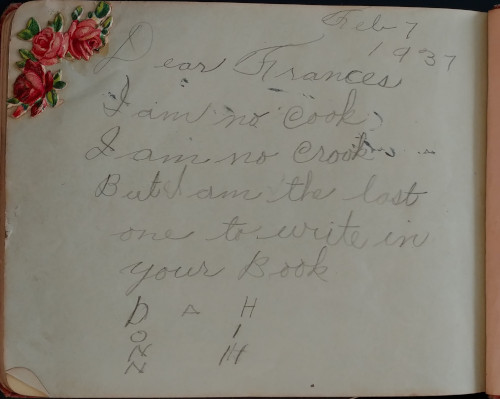 Feb 7
1937
Dear Frances
I am no Cook,
I am no Crook
But I am the last
one to write in
your Book
D A H
O I
N H
N